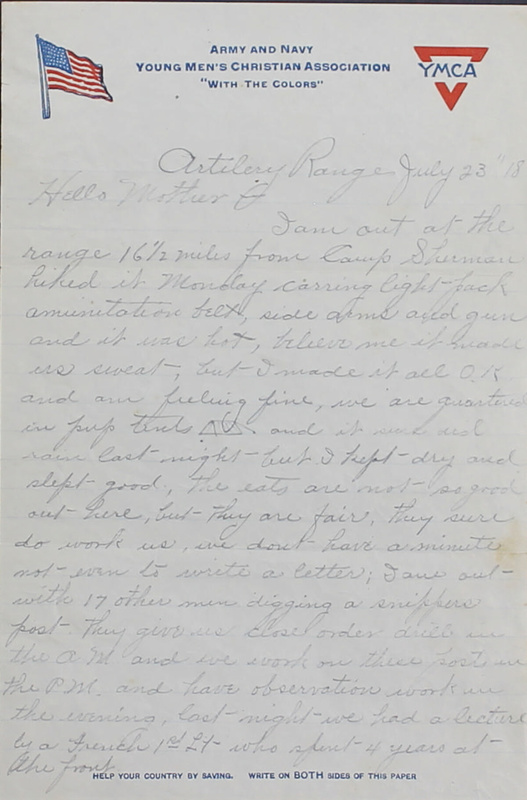 ARMY AND NAVY
YOUNG MEN'S CHRISTIAN ASSOCIATION
"WITH THE COLORS"
YMCA
Artilery Range July 23" 18
Hello Mother
I am out at the
range 16 1/2 miles from Camp Sherman
hiked it Monday carring light pack
amunitation belt, side arms and gun
and it was hot, believe me it made
us sweat, but I made it all O.K.
and am feeling fine, we are quartered
in pup tents and it sure did
rain last night but I kept dry and
slept good, the eats are not so good
out here, but they are fair, they sure
do work us, we dont have a minute
not even to write a letter; I am out
with 17 other men digging a snippers
post. They give us close order drill in
the A.M. and we work on these post in
the P.M. and have observation work in
the evening, last night we had a lecture
by a French 1st Lt who spent 4 years at
the front
HELP YOUR COUNTRY BY SAVING. WRITE ON BOTH SIDES OF THIS PAPER